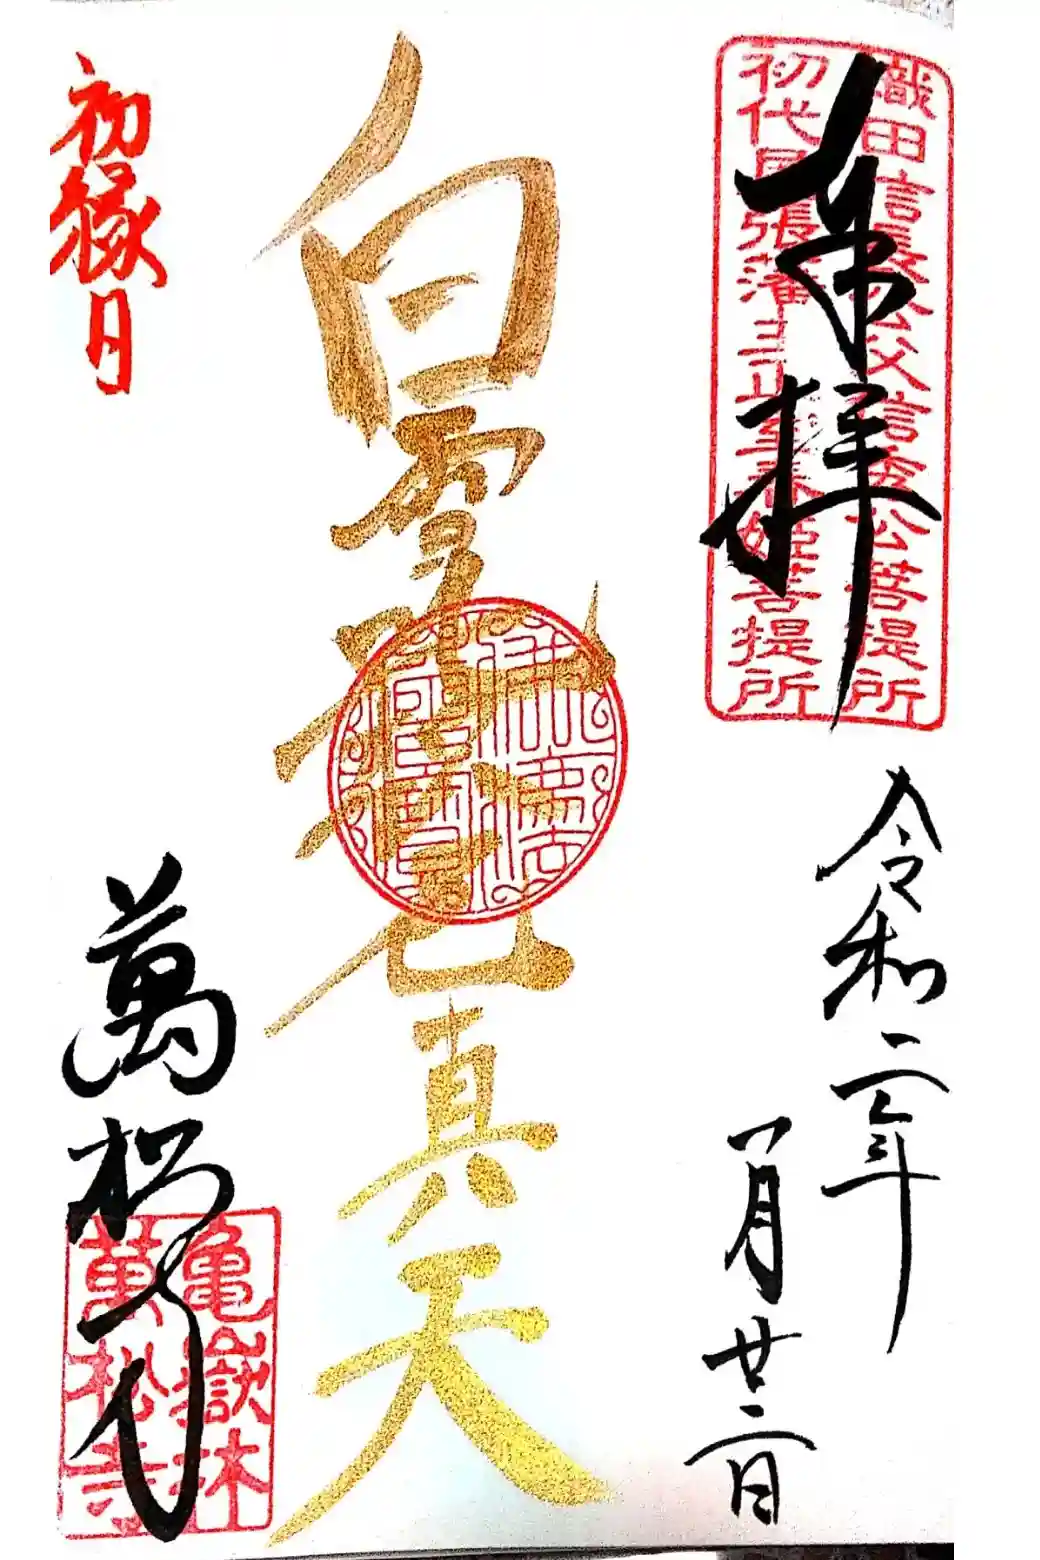 織田信長公父信秀公菩提所
初代尾張藩主正室春姫菩提所
奉拝
令和二年
一月廿二日
白雪吒枳尼真天
初縁日
萬松寺
亀嶽林
萬松寺